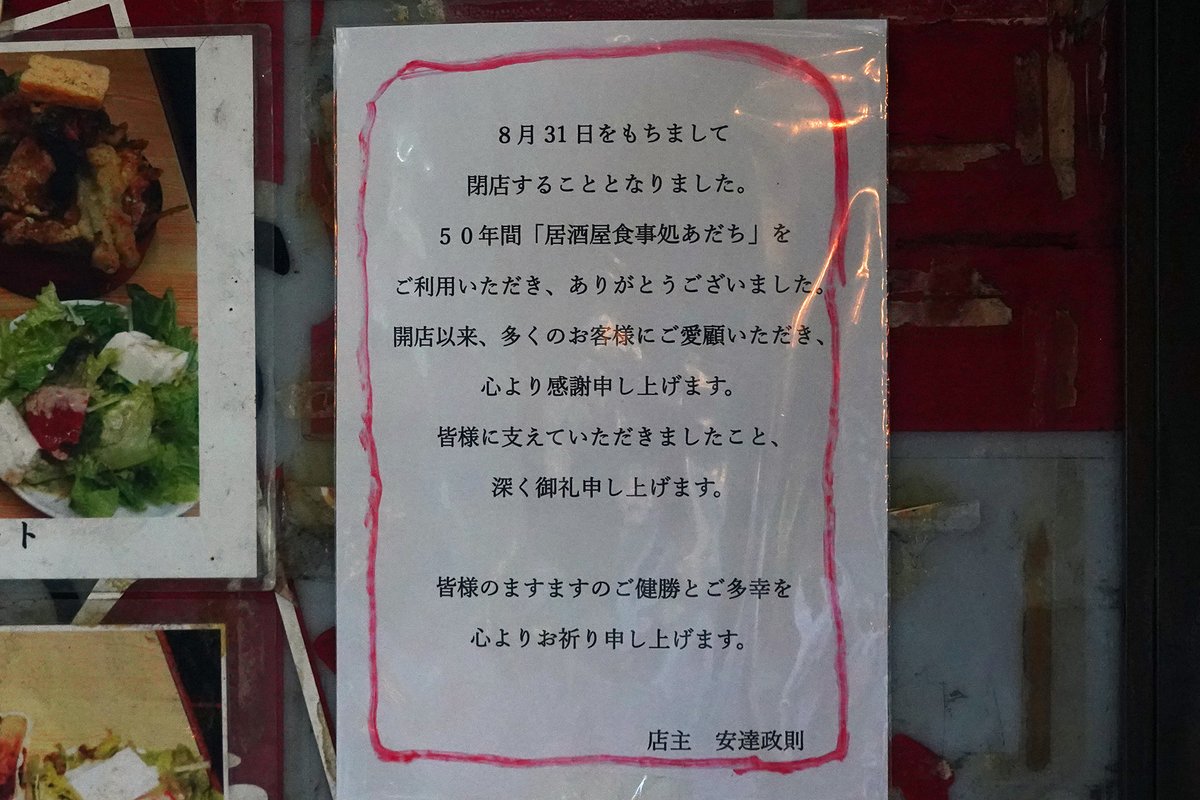 8月31日をもちまして
閉店することとなりました。
５０年間「居酒屋食事処あだち」を
ご利用いただき、ありがとうございました。
開店以来、多くのお客様にご愛顧いただき、
心より感謝申し上げます。
皆様に支えていただきましたこと、
深く御礼申し上げます。
皆様のますますのご健勝とご多幸を
心よりお祈り申し上げます。
店主　安達政則
ト